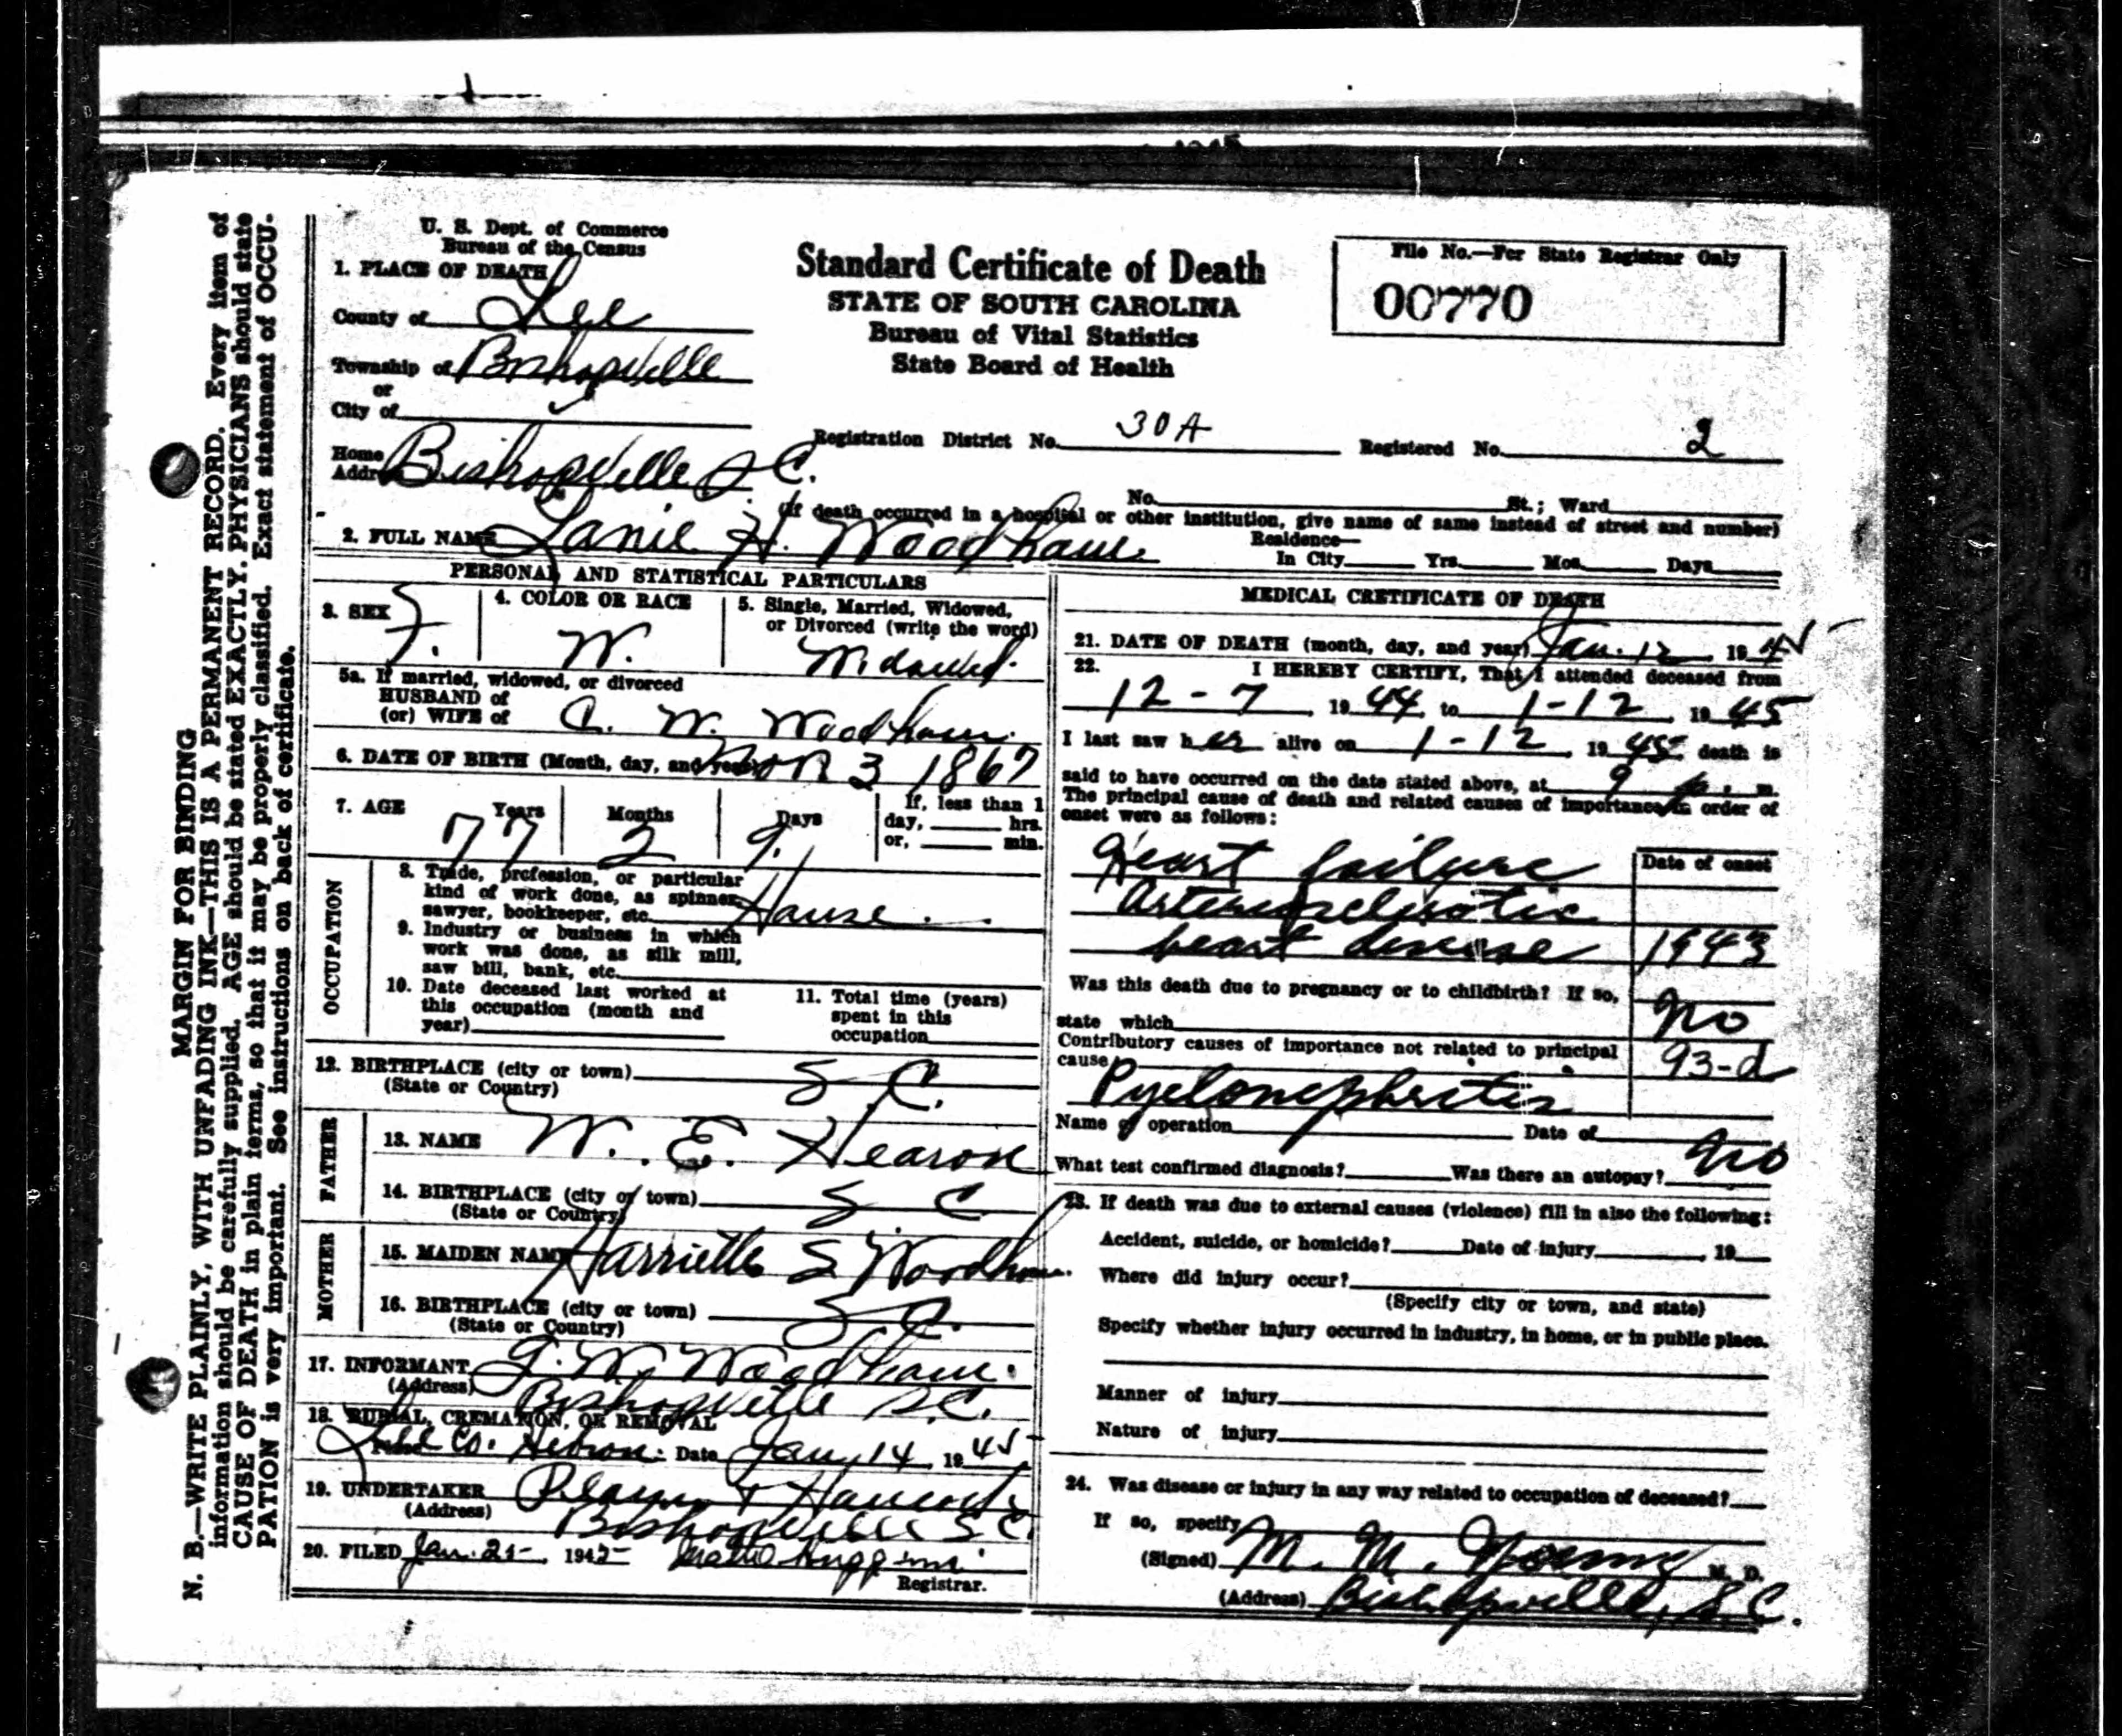 N. B.—WRITE PLAINLY, WITH UNFADING INK—THIS IS A PERMANENT RECORD. Every item of
information should be carefully supplied. AGE should be stated EXACTLY. PHYSICIANS should state
CAUSE OF DEATH in plain terms, so that it may be properly classified. Exact statement of OCCU-
PATION is very important. See instructions on back of certificate.
MARGIN FOR BINDING
U. S. Dept. of Commerce
Bureau of the Census
Standard Certificate of Death
STATE OF SOUTH CAROLINA
Bureau of Vital Statistics
State Board of Health
File No.—For State Registrar Only
00770
1. PLACE OF DEATH
County of Lee
Township of Bishopville
or
City of
Registration District No. 30A Registered No. 2
Home Address Bishopville S C.
No. St.; Ward
(If death occurred in a hospital or other institution, give name of same instead of street and number)
2. FULL NAME Janie H. Woodham
Residence—
In City Yrs. Mos. Days
PERSONAL AND STATISTICAL PARTICULARS
3. SEX F.
4. COLOR OR RACE W.
5. Single, Married, Widowed,
or Divorced (write the word)
Widowed.
5a. If married, widowed, or divorced
HUSBAND of
(or) WIFE of C. W. Woodham.
6. DATE OF BIRTH (Month, day, and year) Nov 3 1867
7. AGE Years 77 Months 2 Days 9.
If, less than 1
day, hrs.
or, min.
OCCUPATION
8. Trade, profession, or particular
kind of work done, as spinner,
sawyer, bookkeeper, etc. House.
9. Industry or business in which
work was done, as silk mill,
saw bill, bank, etc.
10. Date deceased last worked at
this occupation (month and
year)
11. Total time (years)
spent in this
occupation
12. BIRTHPLACE (city or town) S C.
(State or Country)
FATHER
13. NAME W. E. Hearon
14. BIRTHPLACE (city or town) S C
(State or Country)
MOTHER
15. MAIDEN NAME Harriette S. Woodham.
16. BIRTHPLACE (city or town) S C.
(State or Country)
17. INFORMANT G. W. Woodham.
(Address) Bishopville S.C.
18. BURIAL, CREMATION, OR REMOVAL
Place Lee Co. Hebron. Date Jan 14, 1945
19. UNDERTAKER & Hancock
(Address) Bishopville S C.
20. FILED Jan. 25, 1945
Registrar.
MEDICAL CRETIFICATE OF DEATH
21. DATE OF DEATH (month, day, and year) Jan. 12, 1945
22. I HEREBY CERTIFY, That I attended deceased from
12-7, 1944, to 1-12, 1945
I last saw her alive on 1-12, 1945 death is
said to have occurred on the date stated above, at 9 p. m.
The principal cause of death and related causes of importance in order of
onset were as follows:
Date of onset
Heart failure
Arteriosclerotic
heart disease 1943
Was this death due to pregnancy or to childbirth? If so,
state which no
Contributory causes of importance not related to principal
cause 93-d
Pyelonephritis
Name of operation Date of
What test confirmed diagnosis? Was there an autopsy? no
23. If death was due to external causes (violence) fill in also the following:
Accident, suicide, or homicide? Date of injury , 19
Where did injury occur?
(Specify city or town, and state)
Specify whether injury occurred in industry, in home, or in public place.
Manner of injury
Nature of injury
24. Was disease or injury in any way related to occupation of deceased?
If so, specify
(Signed) M. M. Young M. D.
(Address) Bishopville, S.C.